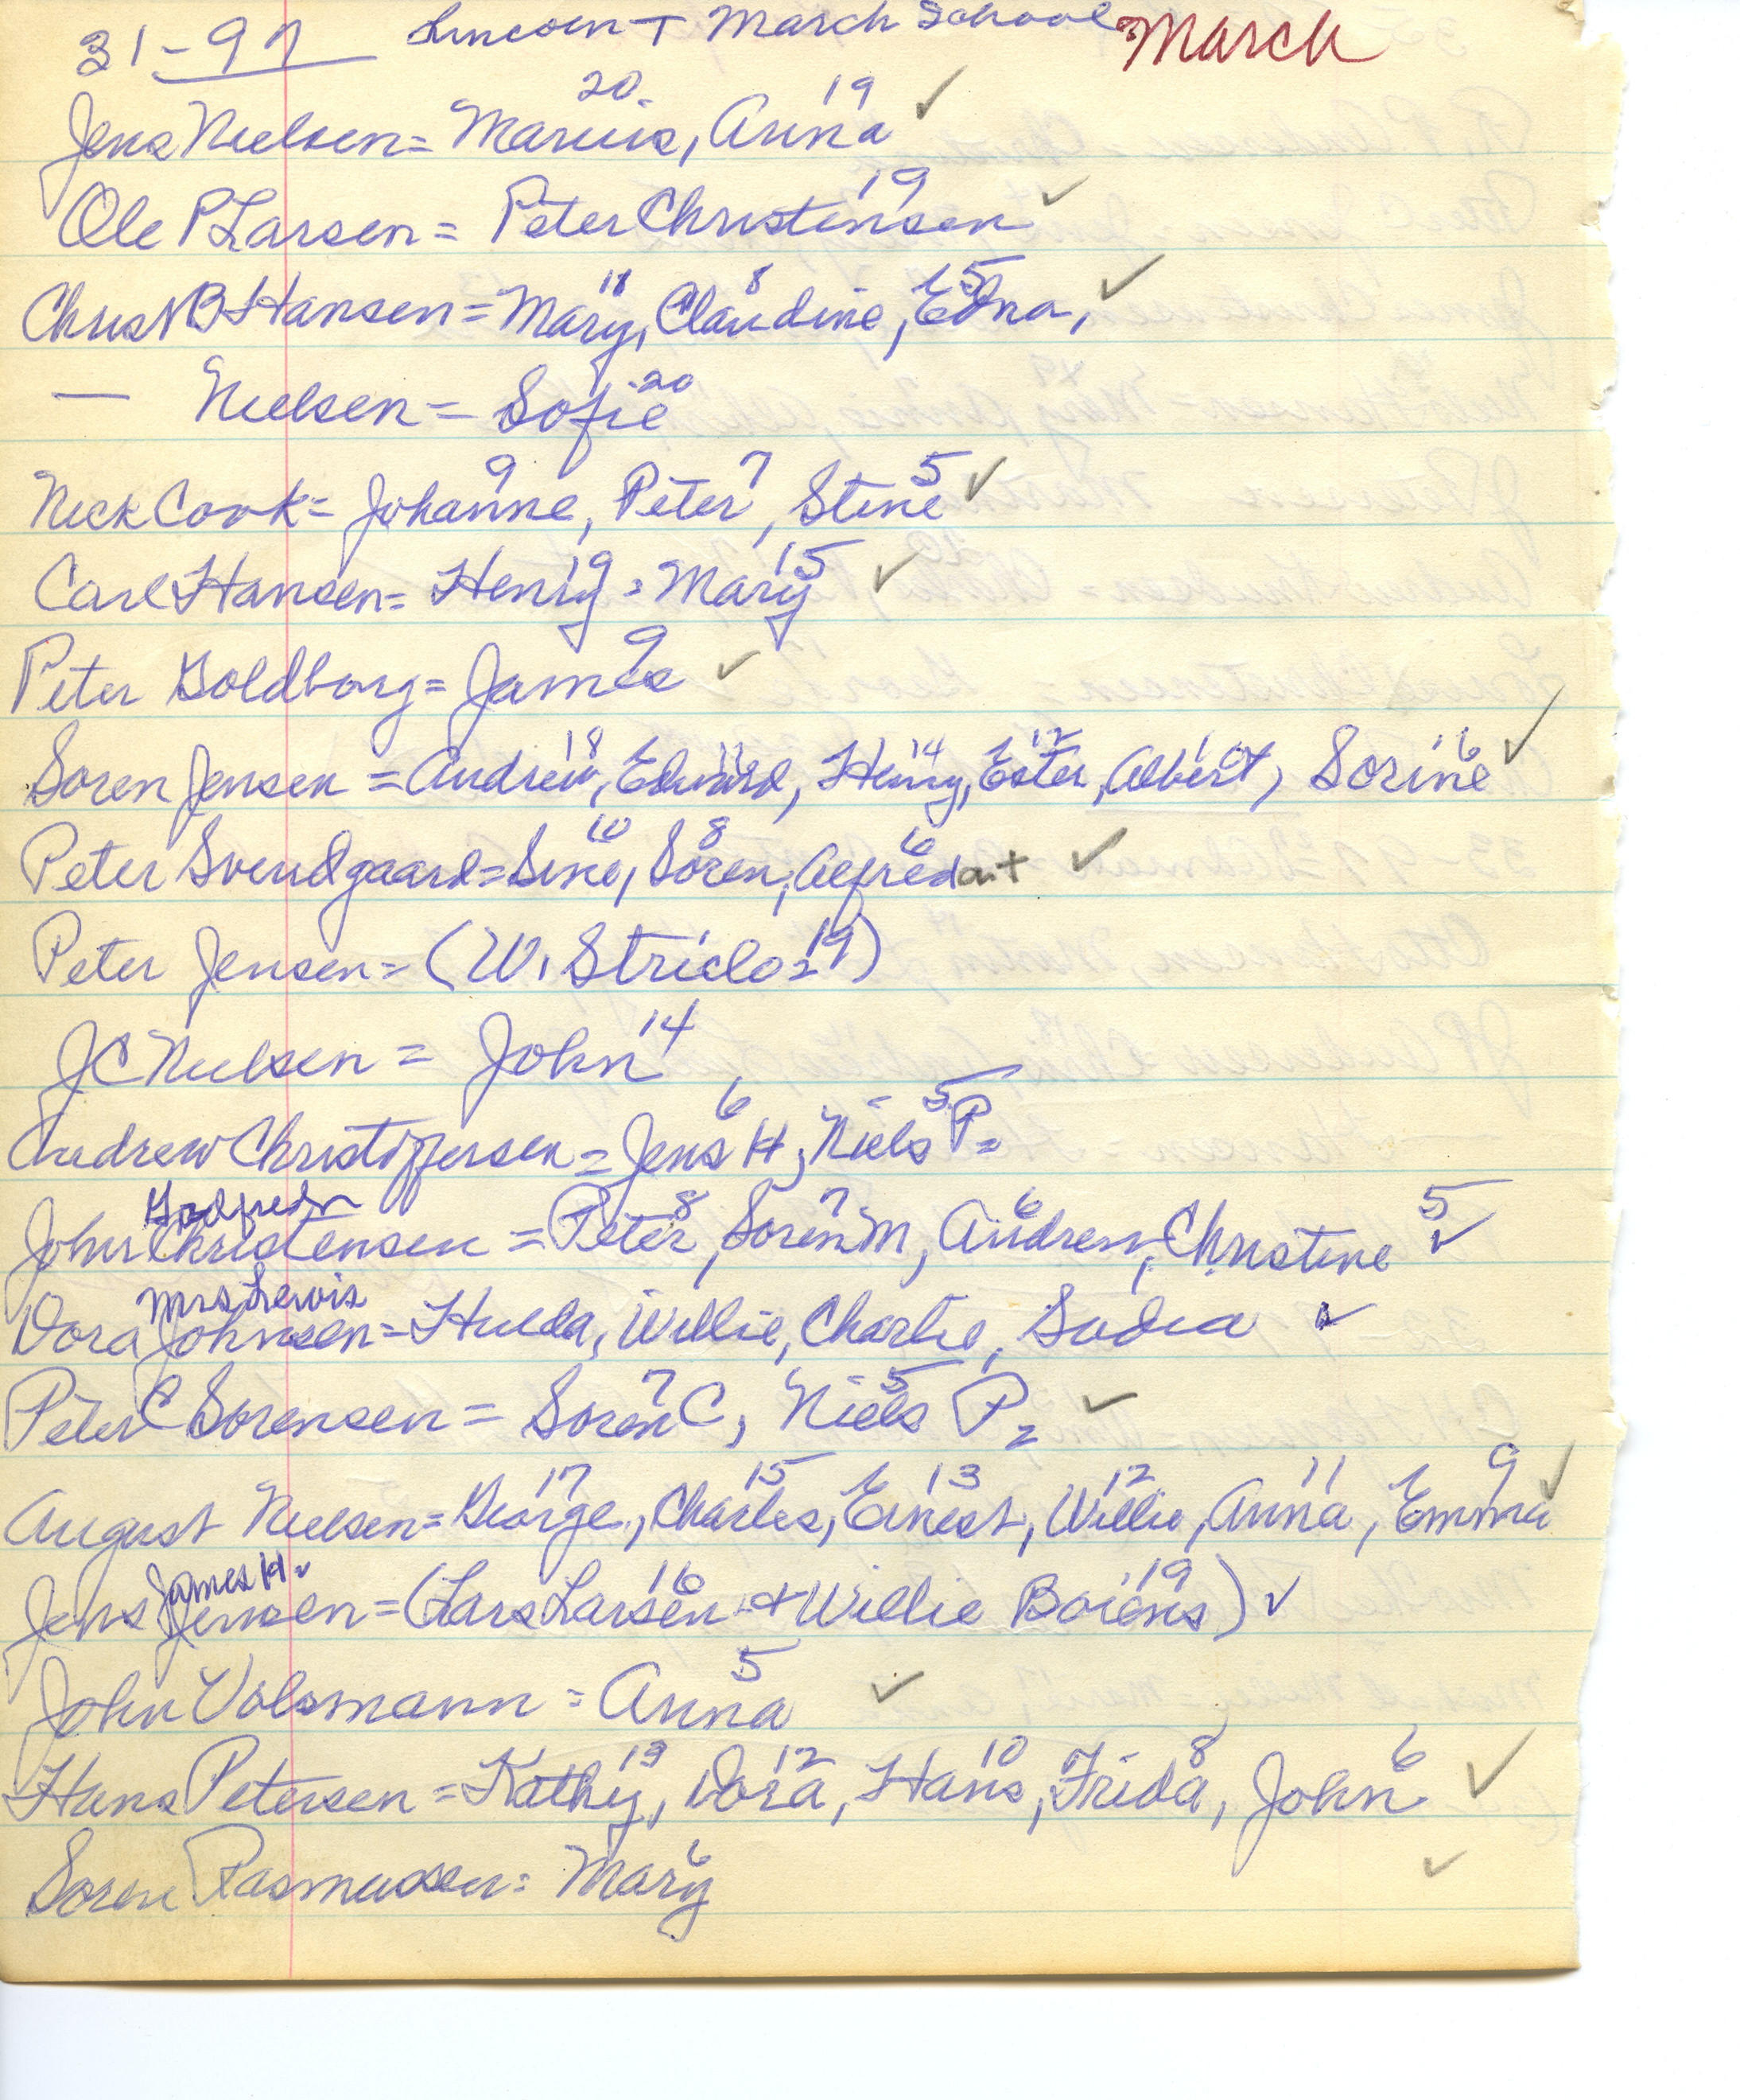 31-97 Lincoln + March School March
20 19 ✓
Jens Nielsen = Marius, Anna
19 ✓
Ole P Larsen = Peter Christensen
11 8 5 ✓
Chris N B Hansen = Mary, Claudine, Edna,
20
— Nielsen = Sofie
9 7 5 ✓
Nick Cook = Johanne, Peter, Stine
9 15 ✓
Carl Hansen = Henry = Mary
9 ✓
Peter Goldborg = James
18 14 12 6 ✓
Soren Jensen = Andrew, Edward, Henry, Ester, Albert, Sorine
10 8 6 ✓
Peter Svendgaard = Sine, Soren, Alfred a.t
19
Peter Jensen = (W. Striclo = )
14
JC Nielsen = John
6 5
Andrew Christoffersen = Jens H, Niels P =
Godfred 8 7 6 5
John Christensen = Peter, Soren M, Andrew, Christine ✓
Mrs Lewis
Dora Johnsen = Hulda, Willie, Charlie, Sadea ✓
7 5 ✓
Peter C Sorensen = Soren C, Niels P =
17 15 13 12 11 9 ✓
August Nielsen = George, Charles, Ernest, Willie, Anna, Emma
James H. 16 19
Jens Jensen = (Lars Larsen + Willie Boiens) ✓
5 ✓
John Volsmann = Anna
13 12 10 8 6 ✓
Hans Petersen = Kathy, Dora, Hans, Frida, John
6 ✓
Soren Rasmussen = Mary